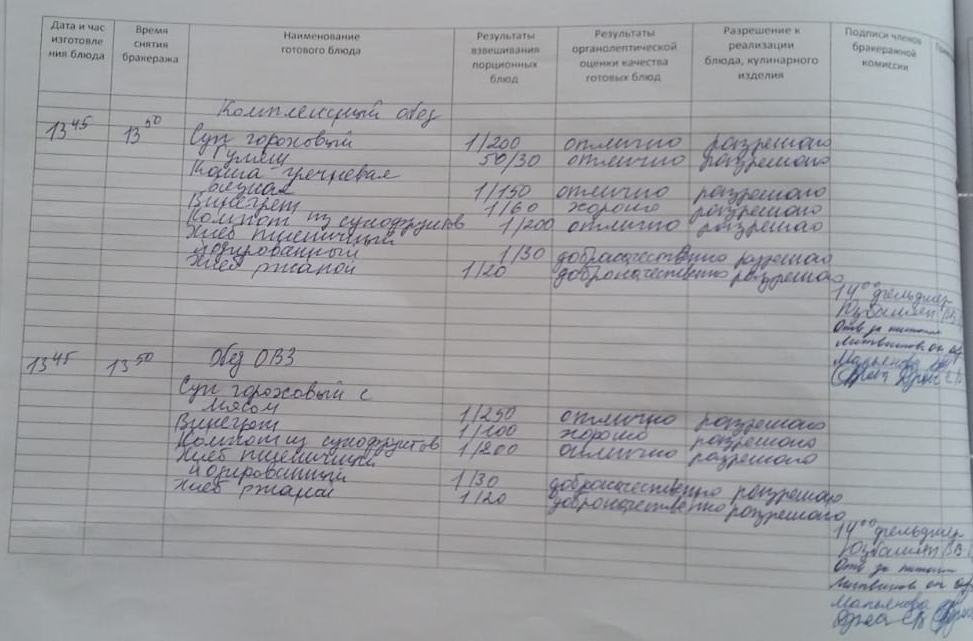 Дата и час изготовле ния блюда
Время снятия бракеража
Наименование готового блюда
Результаты взвешивания порционных блюд
Результаты органолептической оценки качества готовых блюд
Разрешение к реализации блюда, кулинарного изделия
Подписи членов бракеражной комиссии
Комплексный обед
13 45 13 50 Суп гороховый 1/200 отлично разрешаю
Гуляш 50/30 отлично разрешаю
Каша гречневая
вязкая 1/150 отлично разрешаю
Винегрет 1/60 хорошо разрешаю
Компот из сухофруктов 1/200 отлично разрешаю
Хлеб пшеничный
йодированный 1/30 доброкачественно разрешаю
Хлеб ржаной 1/20 доброкачественно разрешаю
14 00 фельдшер
Отв за питание
Марьянова
13 45 13 50 Обед ОВЗ
Суп гороховый с
мясом 1/250 отлично разрешаю
Винегрет 1/100 хорошо разрешаю
Компот из сухофруктов 1/200 отлично разрешаю
Хлеб пшеничный
йодированный 1/30 доброкачественно разрешаю
Хлеб ржаной 1/20 доброкачественно разрешаю
14 00 фельдшер
Отв за питание
Марьянова